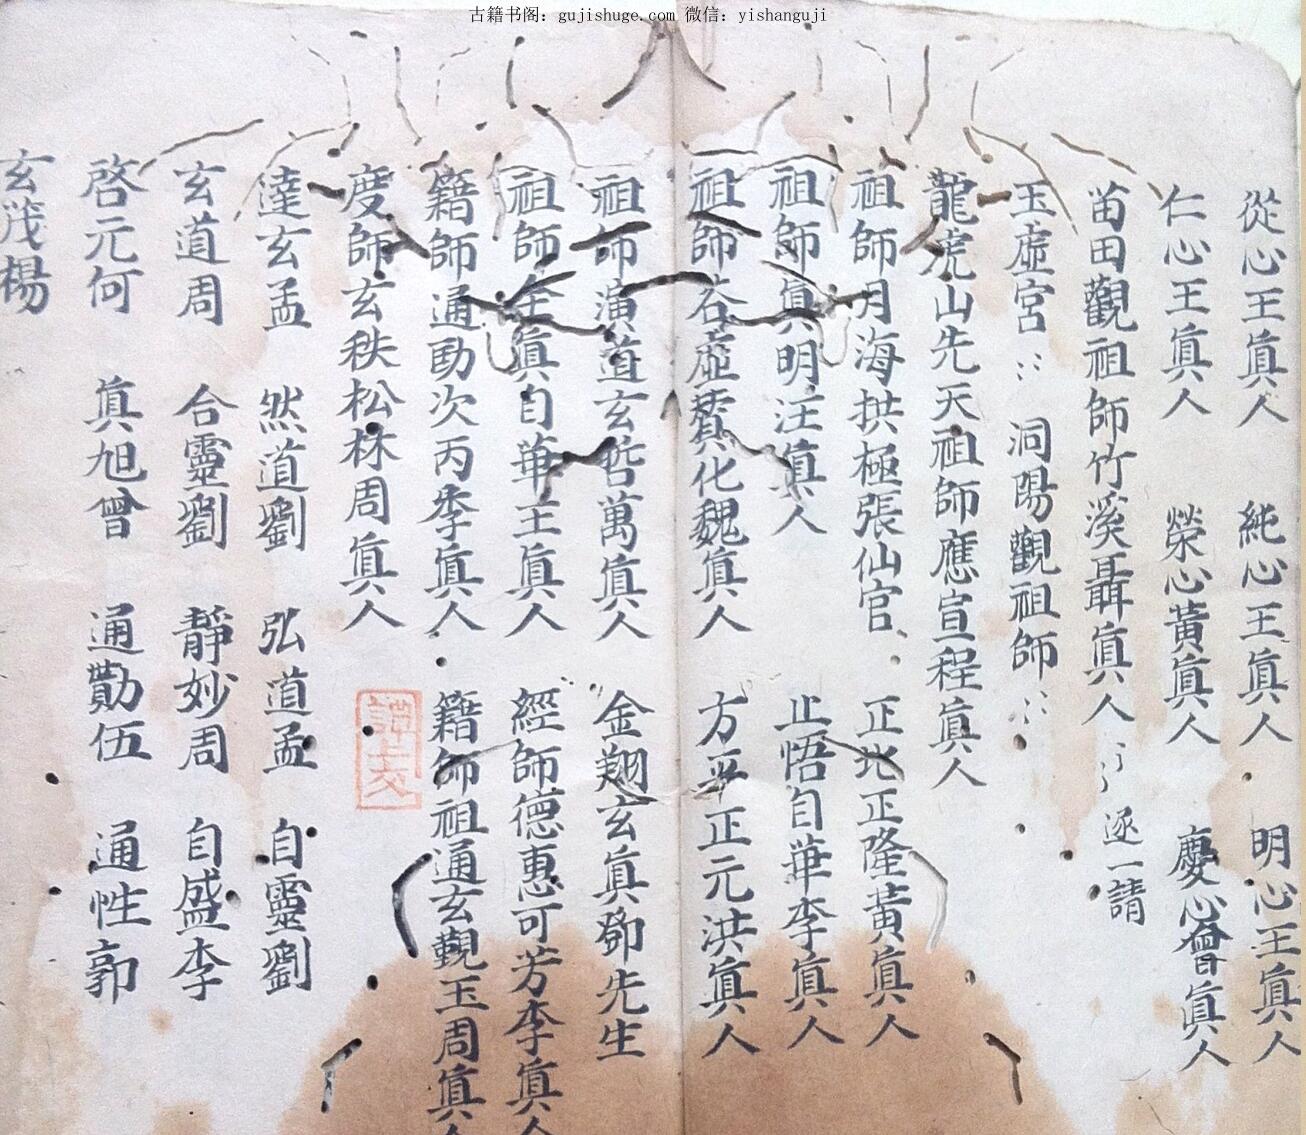 古籍书阁：gujishuge.com 微信：yishanguji
從心王眞人 純心王眞人 明心王眞人
仁心王眞人 榮心黃眞人 慶心會眞人
苗田觀祖師竹溪聶眞人 逐一請
玉虛宮 洞陽觀祖師
龍虎山先天祖師應宣程眞人
祖師月海拱極張仙官 正北正隆黃眞人
祖師眞明汪眞人 止悟自華李眞人
祖師谷虛贊化魏眞人 方平正元洪眞人
祖師演道玄哲萬眞人 金翔玄眞鄧先生
祖師全眞自華王眞人 經師德惠可芳李眞人
籍師通勛次丙李眞人 籍師祖通玄觀玉周眞人
度師玄秩松林周眞人
達玄孟 然道劉 弘道孟 自靈劉
玄道周 合靈劉 靜妙周 自盛李
啓元何 眞旭曾 通勷伍 通性郭
玄茂楊